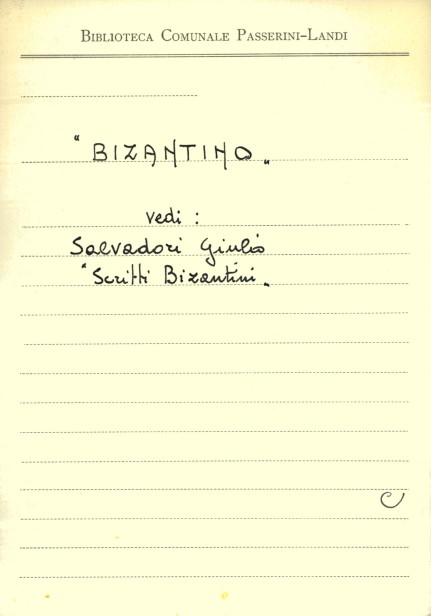 BIBLIOTECA COMUNALE PASSERINI-LANDI
"BIZANTINO"
vedi :
Salvadori Giulio
"Scritti Bizantini"
C